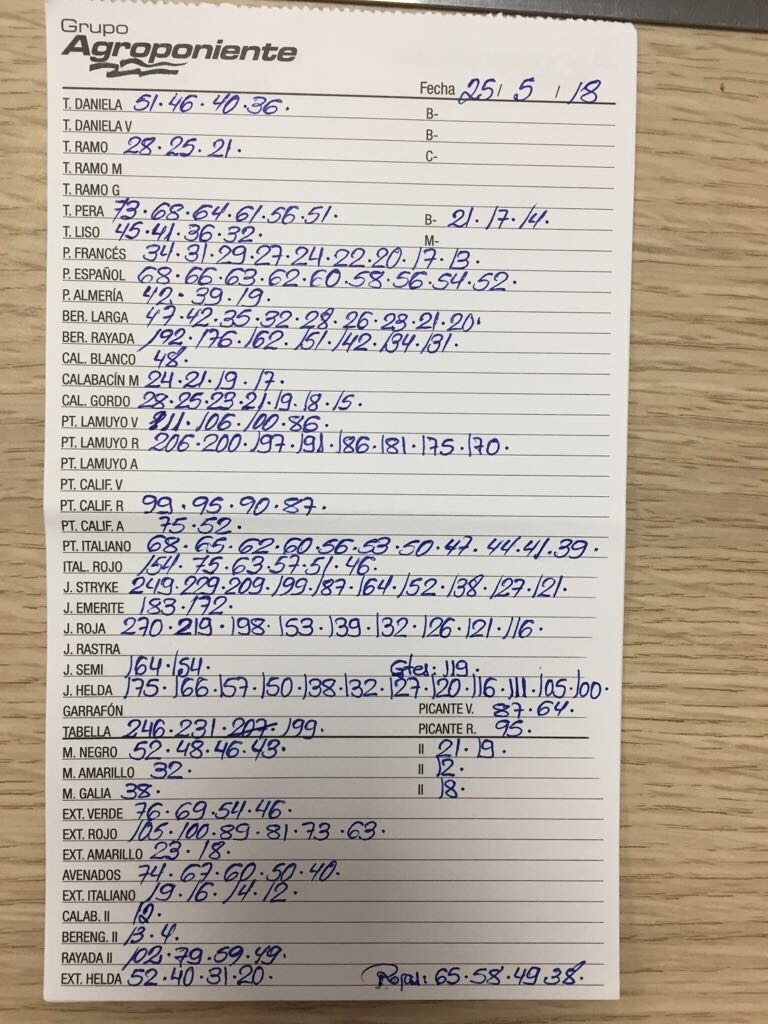 Grupo
Agroponiente
Fecha 25 / 5 / 18
T. DANIELA 51·46·40·36· B-
T. DANIELA V B-
T. RAMO 28·25·21· C-
T. RAMO M
T. RAMO G
T. PERA 73·68·64·61·56·51· B- 21·17·14·
T. LISO 45·41·36·32· M-
P. FRANCÉS 34·31·29·27·24·22·20·17·13·
P. ESPAÑOL 68·66·63·62·60·58·56·54·52·
P. ALMERÍA 42·39·19·
BER. LARGA 47·42·35·32·28·26·23·21·20·
BER. RAYADA 192·176·162·151·142·134·131·
CAL. BLANCO 48·
CALABACÍN M 24·21·19·17·
CAL. GORDO 28·25·23·21·19·18·15·
PT. LAMUYO V 111·106·100·86·
PT. LAMUYO R 206·200·197·191·186·181·175·170·
PT. LAMUYO A
PT. CALIF. V
PT. CALIF. R 99·95·90·87·
PT. CALIF. A 75·52·
PT. ITALIANO 68·65·62·60·56·53·50·47·44·41·39·
ITAL. ROJO 154·75·63·57·51·46·
J. STRYKE 249·229·209·199·187·164·152·138·127·121·
J. EMERITE 183·172·
J. ROJA 270·219·198·153·139·132·126·121·116·
J. RASTRA
J. SEMI 164·154· Gtes: 119·
J. HELDA 175·166·157·150·138·132·127·120·116·111·105·100·
GARRAFÓN PICANTE V. 87·64·
TABELLA 246·231·207·199· PICANTE R. 95·
M. NEGRO 52·48·46·43· II 21·19·
M. AMARILLO 32· II 12·
M. GALIA 38· II 18·
EXT. VERDE 76·69·54·46·
EXT. ROJO 105·100·89·81·73·63·
EXT. AMARILLO 23·18·
AVENADOS 74·67·60·50·40·
EXT. ITALIANO 19·16·14·12·
CALAB. II 12·
BERENG. II 13·4·
RAYADA II 102·79·59·49·
EXT. HELDA 52·40·31·20· Rojas: 65·58·49·38·